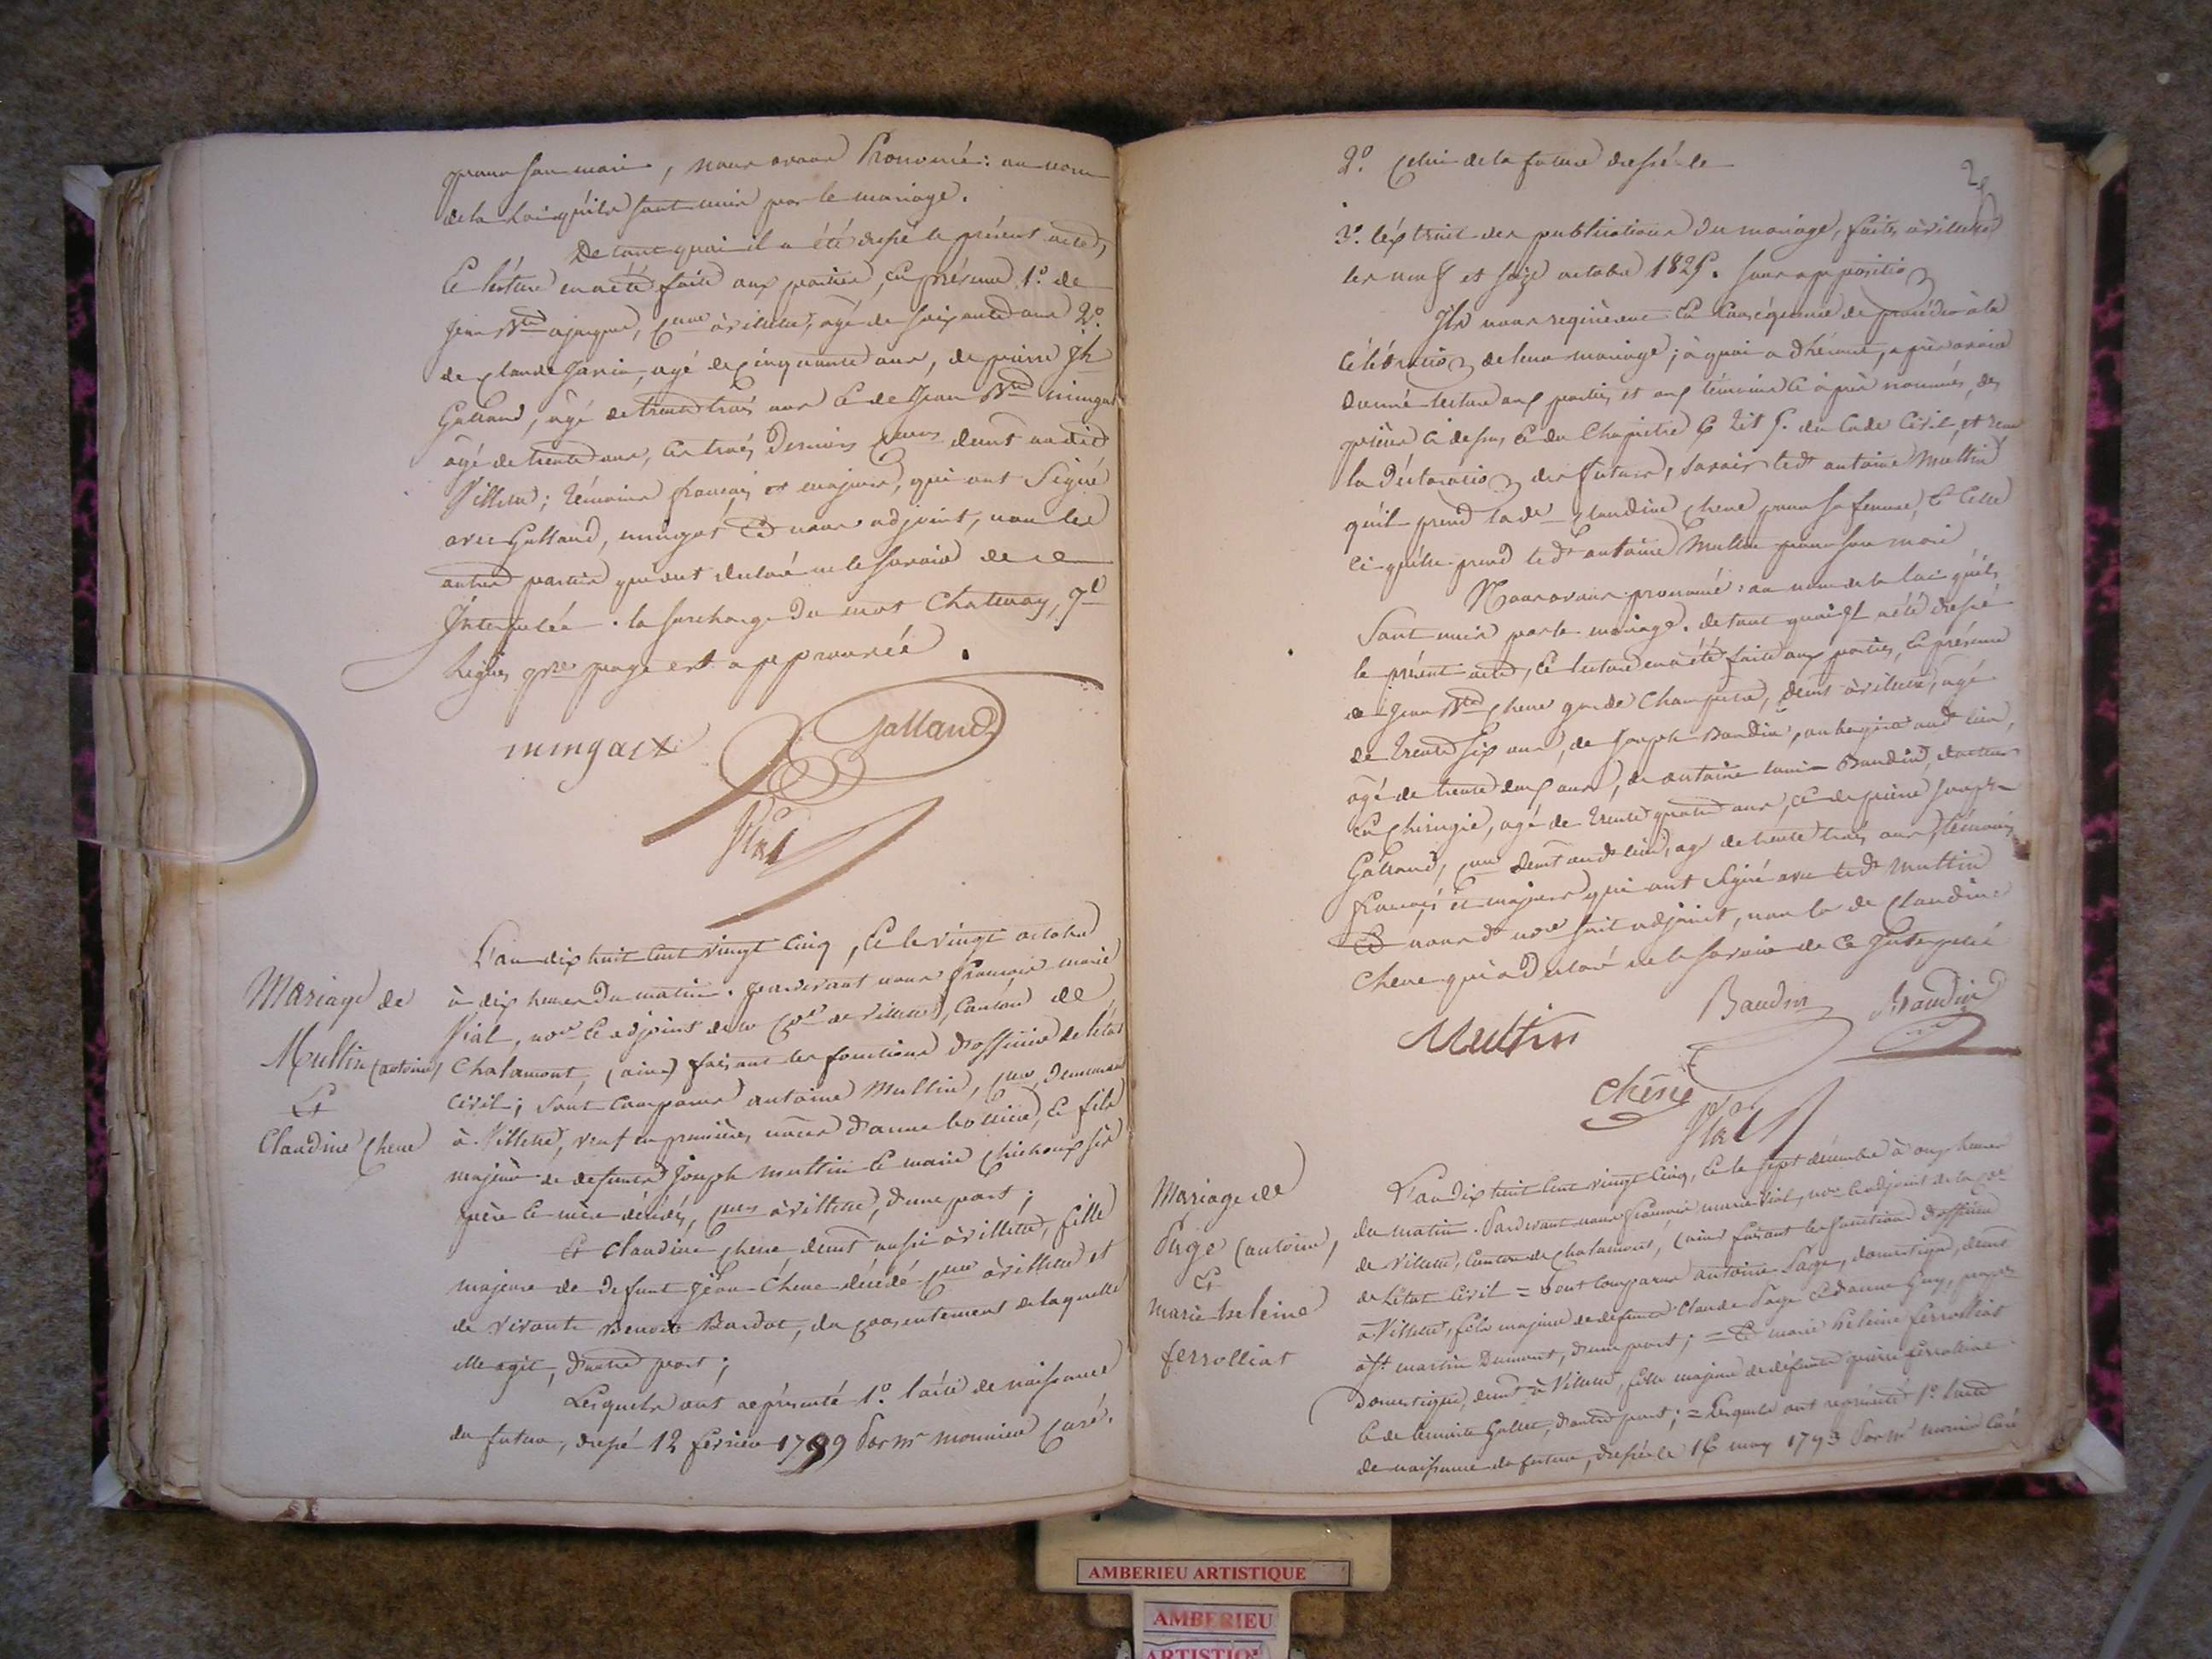 pour son mari, nous avons Prononcé: au nom
de la Loi qu'ils sont unis par le mariage.
De tout quoi il a été dressé le présent acte,
Et lecture en a été faite aux parties, en présence 1º. de
Jean Bte , à villette, âgé de soixante ans 2º.
de Claude Janin, agé de cinquante ans, de pierre Jh
Galland, âgé de trente trois ans Et de Jean Bte mingat
âgé de trente ans, les trois Derniers demt audit
Villette; témoins français et majeurs, qui ont Signé
avec Galland, mingat Et nous adjoint, non les
autres parties qui ont declaré ne le savoir de ce
Interpelés. la surcharge du mot Chatenay, 7e
lignes page est approuvée.
mingat
Galland
Vial
Mariage de
Multin (antoine)
Et
Claudine Chene
L'an dix huit cent vingt cinq, Et le vingt octobre
à dix heures Du matin. pardevant nous françois marie
Vial, Et adjoint de la de villette, Canton de
Chalamont, (ain) faisant les fonctions d'officier de l'état
civil; sont comparus antoine Multin, Demeurant
à Villette, veuf en premières nôces d'anne , Et fils
majeur de defunts joseph multin Et marie ses
père Et mère décédés, à villette, d'une part;
Et Claudine Chene, demt aussi à villette, fille
majeure de Defunt Jean Chene décédé à villette et
de vivante Benoite Bardot, du consentement de laquelle
elle agit, d'autre part;
Lesquels ont représenté 1º. l'acte de naissance
du futur, dressé 12 fevrier 1789 Par Mr monnier Curé.
2º. Celui de la future dressé le
3º. l'extrait des publications du mariage, faites à villette
les neuf et seize octobre 1825. sans opposition
Ils nous requièrent En Conséquence de procéder à la
célébration de leur mariage; à quoi adhérant, après avoir
donné lecture aux parties et aux témoins ci après nommés, des
pièces ci dessus Et du Chapitre 6 tit 5. du Code Civil, et reçu
la Déclaration des futurs, savoir ledt antoine Multin
qu'il prend lade Claudine Chene pour sa femme, Et Celle
ci qu'elle prend ledt antoine Multin pour son mari
Nous avons prononcé: au nom de la loi qu'ils
Sont unis par le mariage. de tout quoi il a été dressé
le présent acte, Et lecture en a été faite aux parties, En présence
de Jean Bte Chene garde Champetre, demt à villette, agé
de trente six ans, de Joseph Baudin, aubergiste audt lieu,
âgé de trente deux ans, de antoine Baudin, docteur
En chirurgie, agé de trente quatre ans, Et de pierre joseph
Galland, demt audt lieu, agé de trente trois ans, témoins
français Et majeurs qui ont signé avec ledt Multin
Et nous dt adjoint, non la de Claudine
Chene qui a Déclaré ne le savoir de ce Interpelée
Baudin Baudin
Multin
chêne
Vial
Mariage de
Page (antoine)
Et
marie heleine
ferrolliat
L'an dix huit cent vingt cinq, Et le sept décembre à onze heures
du matin. Pardevant nous françois marie Vial, Et adjoint de la
de villette, Canton de Chalamont, (ain) faisant les fonctions d'officier
de L'état Civil = sont comparus antoine Page, domestique, demt
à Villette, fils majeur de defunts Claude Page Et d'anne Guy,
à St. martin Dumont, d'une part; = Et marie heleine ferrolliat
Domestique, demt à Villette, fille majeure de défunts pierre ferrolliat
Et de Gallet, d'autre part; = Lesquels ont représenté 1º. l'acte
de naissance du futur, dressé le 16 may 1793 Par Mr monnier Curé
AMBERIEU ARTISTIQUE
AMBERIEU
ARTISTIQ